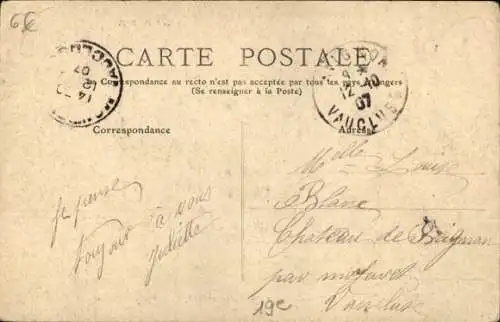 6€
CARTE POSTALE
La Correspondance au recto n'est pas acceptée par tous les pays étrangers
(Se renseigner à la Poste)
Correspondance
Adresse
VAUCLUSE
12 -10
07
Je pense
toujours à vous
Juliette
Melle Louise
Blanc
Château de
par
Vaucluse
19e